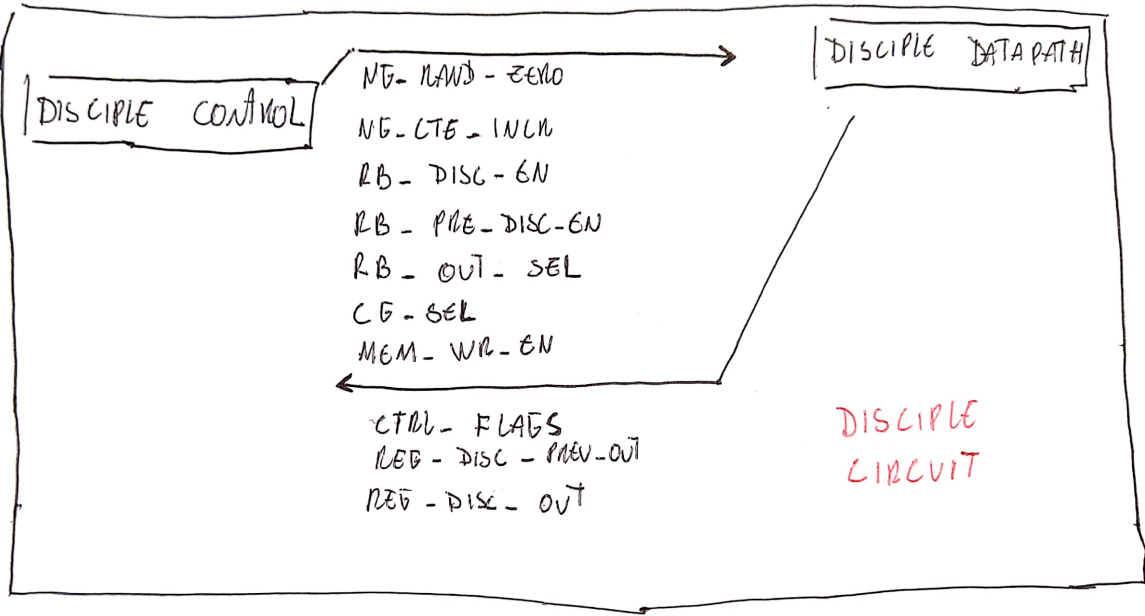 DISCIPLE CONTROL
NG-RAND-ZERO
NG-CTE-INCR
RB-DISC-EN
RB-PRE-DISC-EN
RB-OUT-SEL
CG-SEL
MEM-WR-EN
DISCIPLE DATAPATH
CTRL-FLAGS
REG-DISC-PREV-OUT
REG-DISC-OUT
DISCIPLE
CIRCUIT